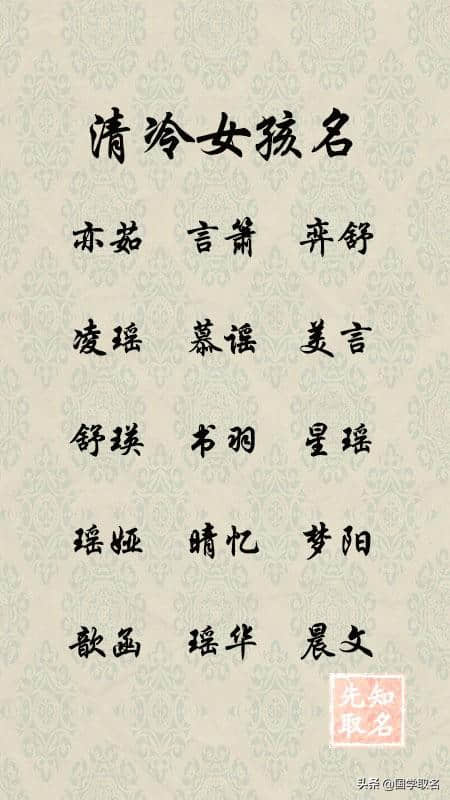 清冷女孩名
亦茹 言箫 弈舒
凌瑶 慕谣 美言
舒瑛 书羽 星瑶
瑶娅 晴忆 梦阳
歆函 瑶华 晨文
先知
取名
头条 @国学取名